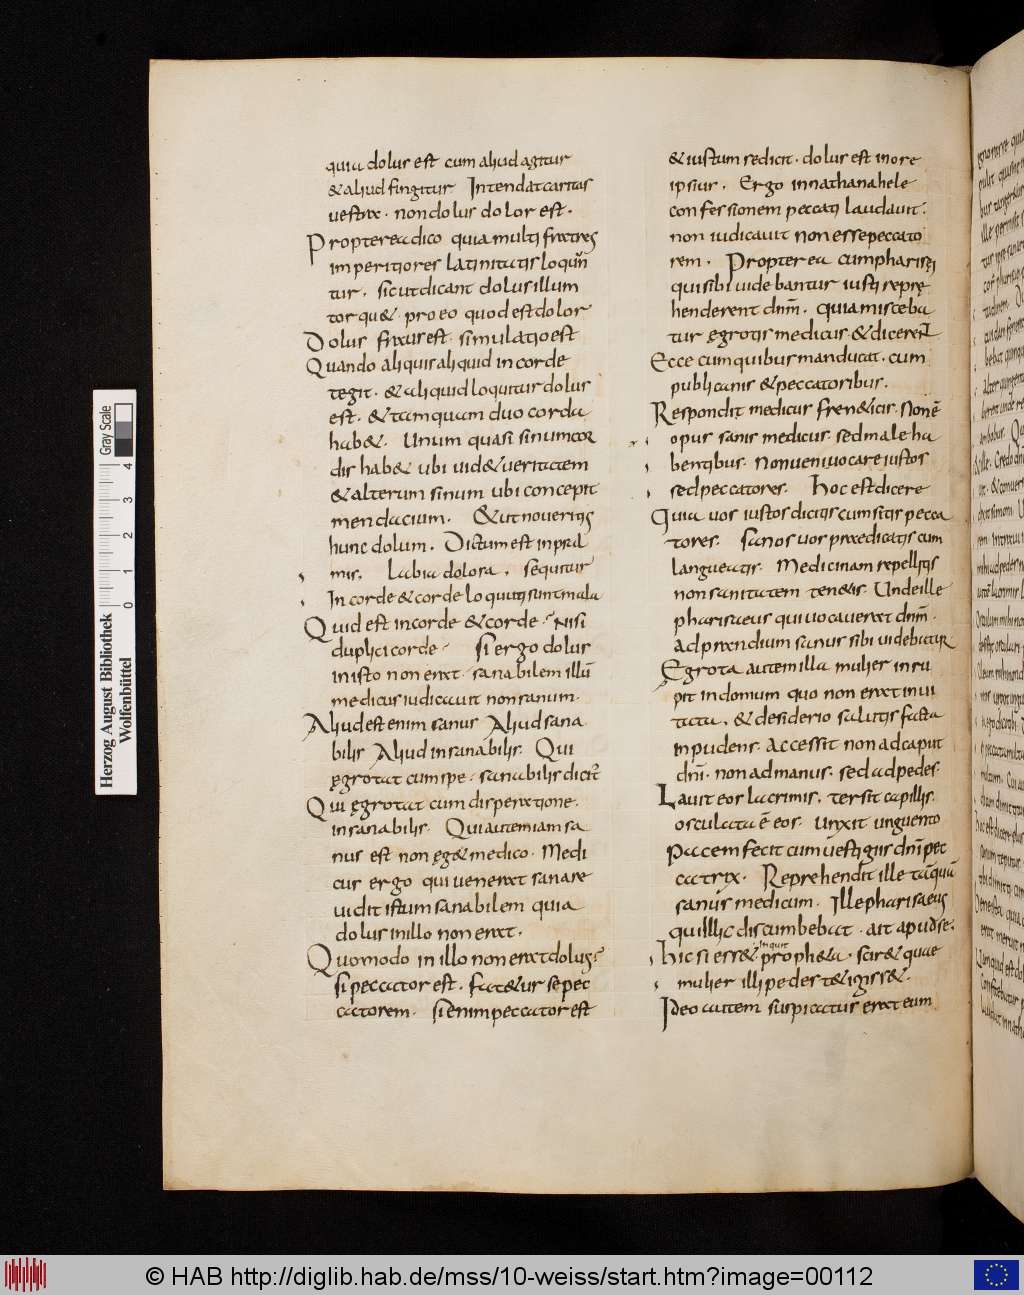 quia dolus est cum aliud agitur
& aliud fingitur Intendat caritas
uestra · non dolus dolor est ·
Propterea dico quia multi fratres
imperitiores latinitatis loqun
tur · sicut dicant dolus illum
torqu& · pro eo quod est dolor
Dolus fraus est · simulatio est
Quando aliquis aliquid in corde
tegit · & aliquid loquitur dolus
est · & tamquam duo corda
hab& · Unum quasi sinum cor
dis hab& ubi uid& ueritatem
& alterum sinum ubi concepit
mendacium · & ut noueritis
hunc dolum · Dictum est in psal
mis · Labia dolosa · sequitur
In corde & corde locuti sunt mala
Quid est in corde & corde · Nisi
duplici corde · Si ergo dolus
in isto non erat · sanabilem illū
medicus iudicauit non sanum ·
Aliud est enim sanus Aliud sana
bilis Aliud insanabilis · Qui
ęgrotat cum spe · sanabilis dicit̄
Qui ęgrotat cum disperatione ·
insanabilis · Qui autem iam sa
nus est non ęg& medico · Medi
cus ergo qui uenerat sanare
uidit istum sanabilem quia
dolus in illo non erat ·
Quomodo in illo non erat dolus ·
si peccator est · fat&ur se pec
catorem · Si enim peccator est
& iustum se dicit · dolus est in ore
ipsius · Ergo in nathanahele
confessionem peccati laudauit ·
non iudicauit non esse peccato
rem · Propterea cum pharisęi
qui sibi uidebantur iusti reprę
henderent dnm̄ · quia misceba
tur ęgrotis medicus & dicerent
Ecce cum quibus manducat · cum
publicanis & peccatoribus ·
Respondit medicus fren&icis · Non ē
opus sanis medicus · sed male ha
bentibus · Non ueni uocare iustos
sed peccatores · Hoc est dicere
Quia uos iustos dicitis cum sitis pecca
tores · Sanos uos praedicatis cum
langueatis · Medicinam repellitis
non sanitatem ten&is · Unde ille
pharisaeus qui uocauerat dnm̄ ·
ad prandium sanus sibi uidebatur
Egrota autem illa mulier inru
pit in domum quo non erat inui
tata · & desiderio salutis facta
inpudens · accessit non ad caput
dnī · non ad manus · sed ad pedes ·
Lauit eos lacrimis · tersit capillis ·
osculata ē eos · Unxit unguento
Pacem fecit cum uestigiis dnī pec
catrix · Reprehendit ille tāquā
sanus medicum · Ille pharisaeus
qui illic discumbebat · ait apud se ·
Hic si ess& proph&a · scir& quae
inquit
mulier illi pedes t&igiss& ·
Ideo autem suspicatus erat eum
© HAB http://diglib.hab.de/mss/10-weiss/start.htm?image=00112
Herzog August Bibliothek
Wolfenbüttel
0 1 2 3 4
Gray Scale